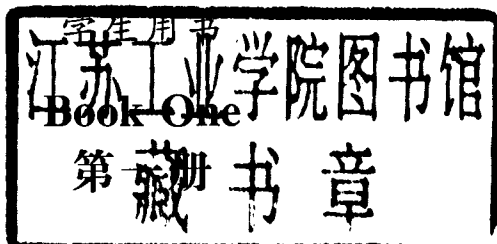 学生用书
江苏工业学院图书馆
Book One
第一册
藏书章